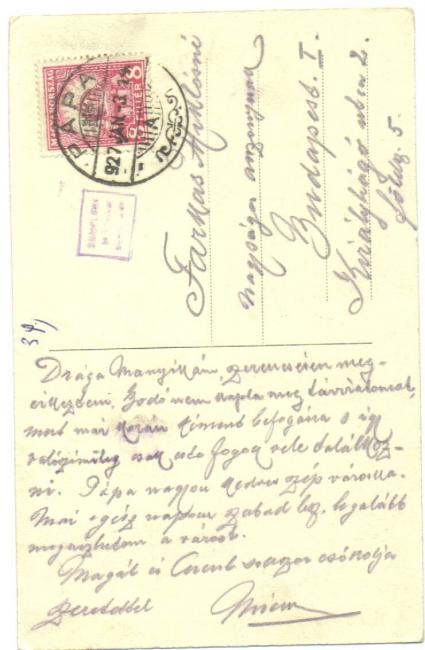 MAGYARORSZÁG
8 FILLÉR 8
PÁPA
927 JAN
Farkas Miklósné
nagysága
Budapest. I.
Királyhágó utca 2.
34)
Drága Manyikám szerencsésen meg-
érkeztem. Bodó nem kapta meg táviratomat,
most már korán elment befogóira s így
valószínűleg csak este fogok vele találkoz-
ni. Pápa nagyon kedves szép városka.
Mai egész napom szabad lesz, legalább
megnézhetem a várost.
Magát és sokszor csókolja
szeretettel